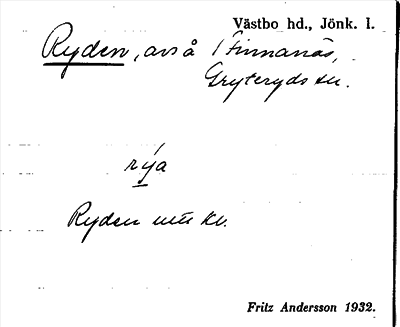 Västbo hd., Jönk. l.
Ryden, avs å i Finnanäs,
Gryteryds sn.
rýa
Ryden
Fritz Andersson 1932.